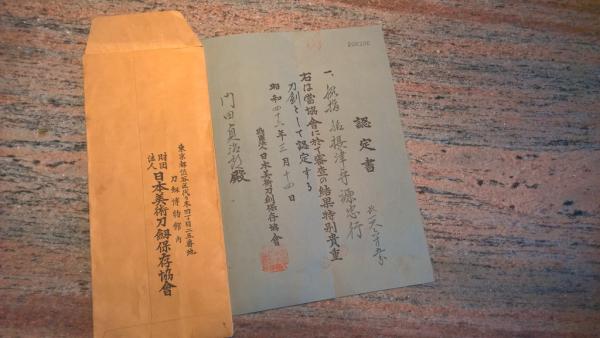 認定書
一、脇指 粟田口摂津守源忠行
右は當協會に於て審査の結果特別貴重
刀剣として認定する
昭和四十三年三月十四日
財団法人日本美術刀剣保存協會
門田貞治郎殿
東京都渋谷区代々木四丁目二五番地
刀剣博物館内
財団
法人
日本美術刀剣保存協會